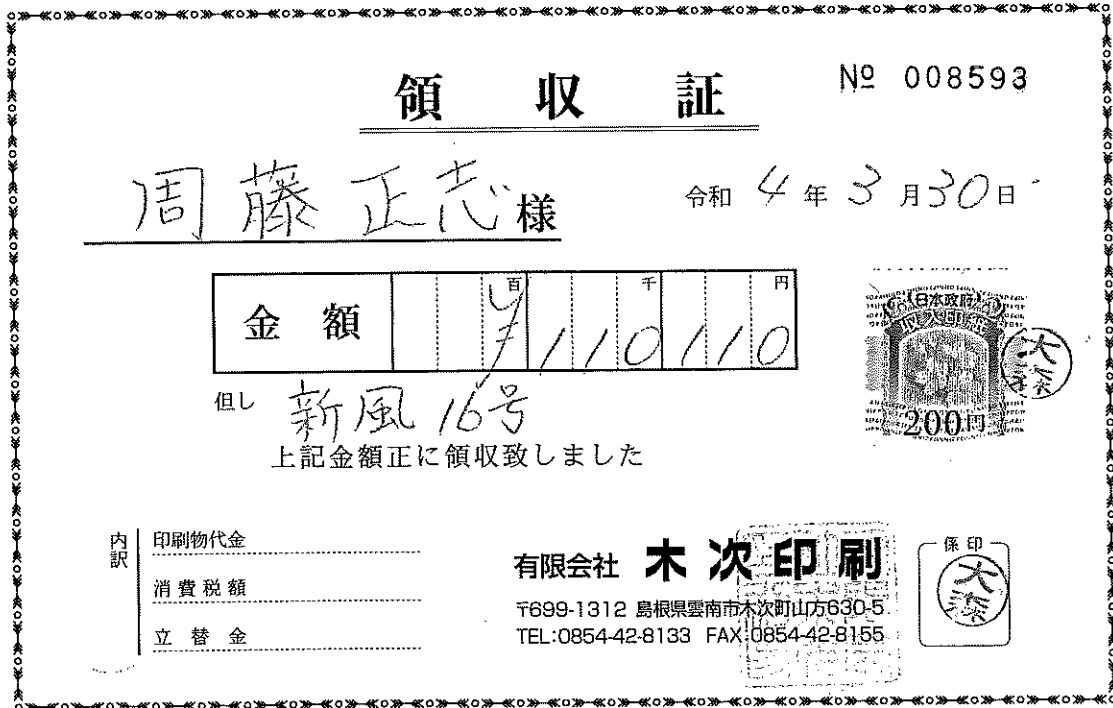 領収証
№ 008593
周藤正志様
令和 4年3月30日
金額 百 千 円
¥110110
但し 新風16号
上記金額正に領収致しました
日本政府
収入印紙
200円
大森
内訳
印刷物代金
消費税額
立替金
有限会社 木次印刷
〒699-1312 島根県雲南市木次町山方630-5
TEL:0854-42-8133 FAX:0854-42-8155
係印
大森